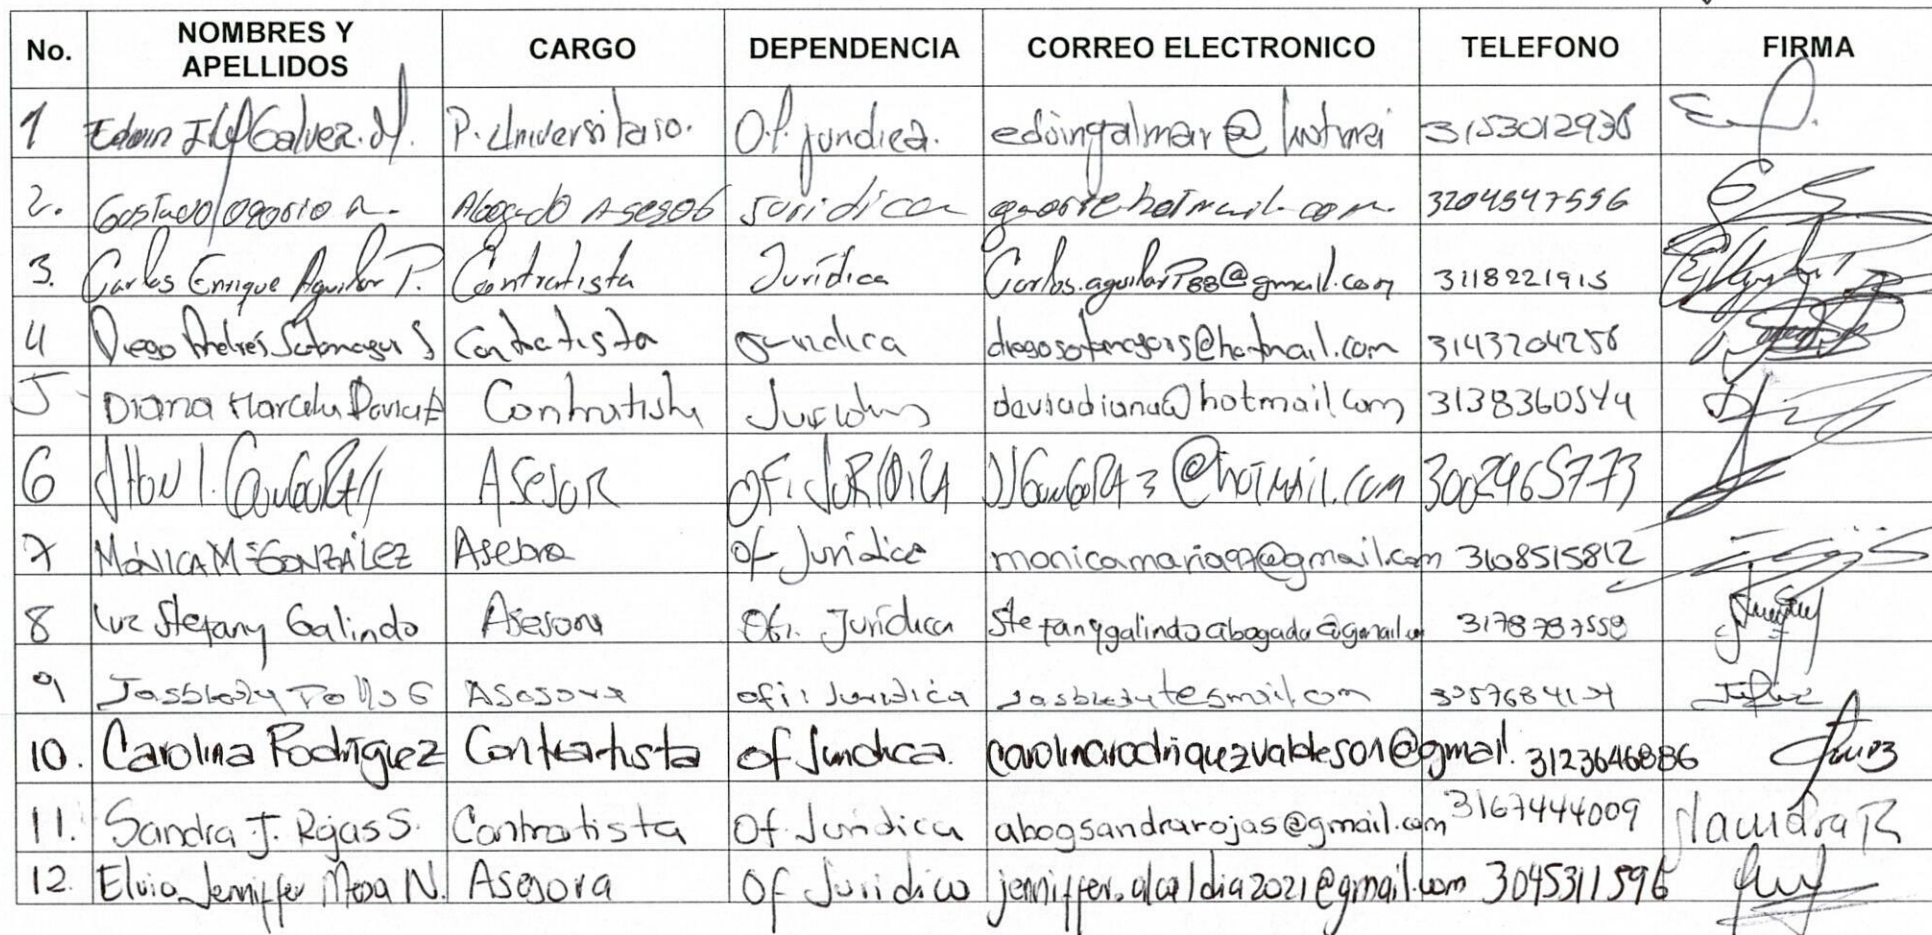 No. NOMBRES Y APELLIDOS CARGO DEPENDENCIA CORREO ELECTRONICO TELEFONO FIRMA
1 Edwin Galvez. M. P. Universitario. Of. juridica. edwingalmar@hotmai 3153012938
2. Gustavo osorio a. Abogado Asesor juridica 3204547556
3. Carlos Enrique Aguilar P. Contratista Jurídica Carlos.aguilarP88@gmail.com 3118221915
4 Diego Andrés Sotomayor S Contratista Juridica diegosotomayors@hotmail.com 3143204256
5 Diana Marcela Contratista Juridica daviadiana@hotmail.com 3138360544
6 JHON J. GONGORA Asesor OFI. JURIDICA JJGONGORA3@hotmail.com 3002965773
7 MÓNICA M GONZÁLEZ Asesora Of Jurídica monicamaria97@gmail.com 3108515812
8 Luz Stefany Galindo Asesora Ofi. Jurídica Stefanygalindoabogada@gmail.com 3178787559
9 Asesora ofi: Juridica
10. Carolina Rodríguez Contratista Of Juridica. carolinarodriguezvaldeson@gmail. 3123646886
11. Sandra J. Rojas S. Contratista Of. Juridica abogsandrarojas@gmail.com 3167444009 Sandra R
12. Elvia Jenniffer Mesa N. Asesora Of Juridica jenniffer.alcaldia2021@gmail.com 3045311596